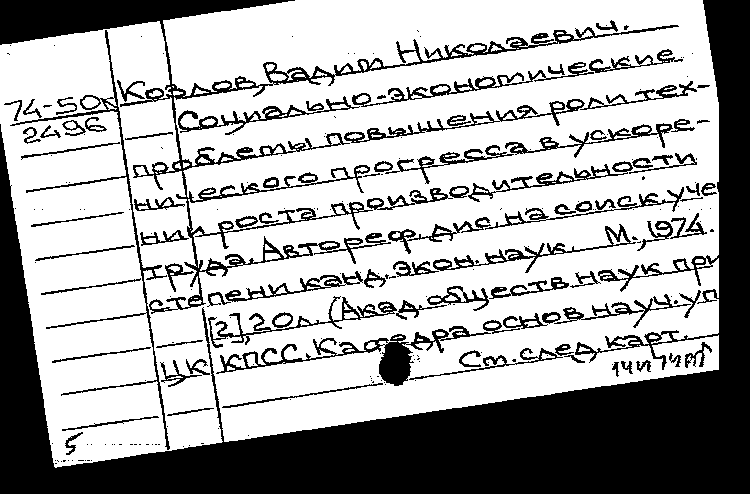 74-50к Козлов, Вадим Николаевич.
2496 Социально-экономические
проблемы повышения роли тех-
нического прогресса в ускоре-
нии роста производительности
труда. Автореф. дис. на соиск. уче
степени канд. экон. наук. М., 1974.
[2], 20 л. (Акад. обществ. наук при
ЦК КПСС. Кафедра основ науч. уп
Ст. след. карт.
5